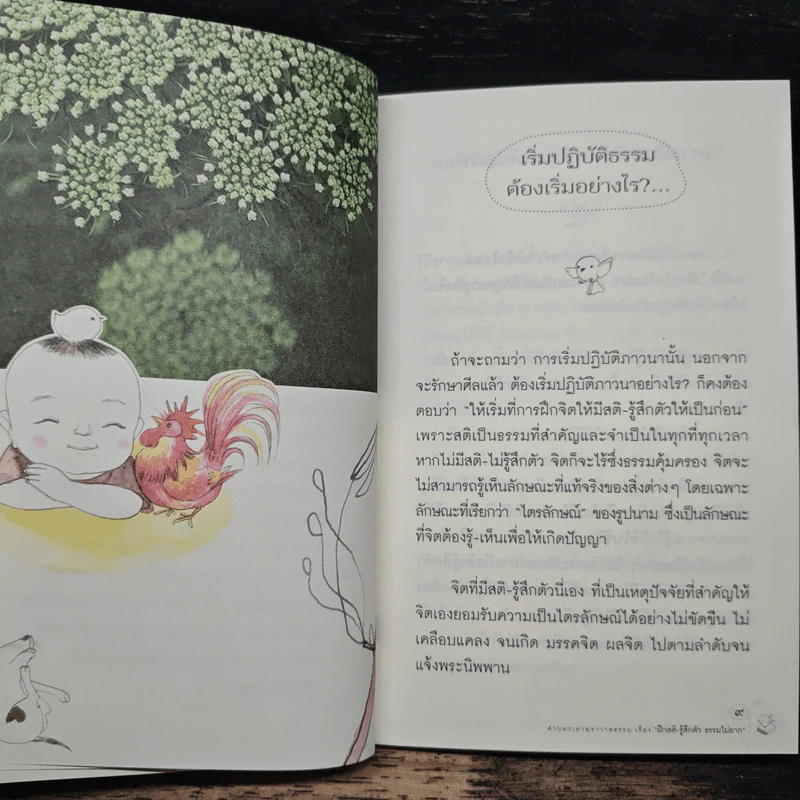 เริ่มปฏิบัติธรรม
ต้องเริ่มอย่างไร?...
ถ้าจะถามว่า การเริ่มปฏิบัติภาวนานั้น นอกจาก
จะรักษาศีลแล้ว ต้องเริ่มปฏิบัติภาวนาอย่างไร? ก็คงต้อง
ตอบว่า "ให้เริ่มที่การฝึกจิตให้มีสติ-รู้สึกตัวให้เป็นก่อน"
เพราะสติเป็นธรรมที่สำคัญและจำเป็นในทุกที่ทุกเวลา
หากไม่มีสติ-ไม่รู้สึกตัว จิตก็จะไร้ซึ่งธรรมคุ้มครอง จิตจะ
ไม่สามารถรู้เห็นลักษณะที่แท้จริงของสิ่งต่างๆ โดยเฉพาะ
ลักษณะที่เรียกว่า "ไตรลักษณ์" ของรูปนาม ซึ่งเป็นลักษณะ
ที่จิตต้องรู้-เห็นเพื่อให้เกิดปัญญา
จิตที่มีสติ-รู้สึกตัวนี่เอง ที่เป็นเหตุปัจจัยที่สำคัญให้
จิตเองยอมรับความเป็นไตรลักษณ์ได้อย่างไม่ขัดขืน ไม่
เคลือบแคลง จนเกิด มรรคจิต ผลจิต ไปตามลำดับจน
แจ้งพระนิพพาน
๙
คำบอกเล่าฆราวาสธรรม เรื่อง "ฝึกสติ-รู้สึกตัว ธรรมไม่ยาก"